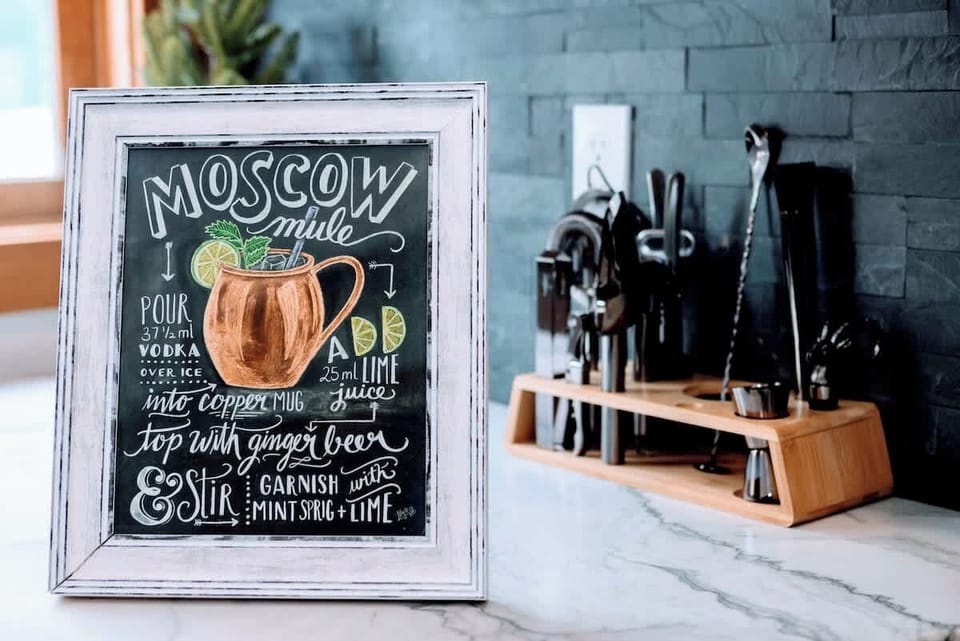 MOSCOW
mule
POUR
37 1/2 ml
VODKA
OVER ICE
A
25 ml LIME
juice
into copper MUG
top with ginger beer
& Stir
GARNISH with
MINT SPRIG + LIME